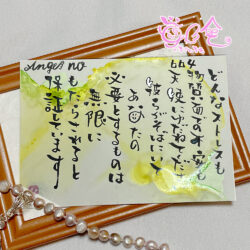 Angel no.
664
どんなストレスも
物質面での不安も
天使にゆだねて下さい
彼らがそばにいて
あなたの
必要とするものは
無限に
もたらされると
保証しています